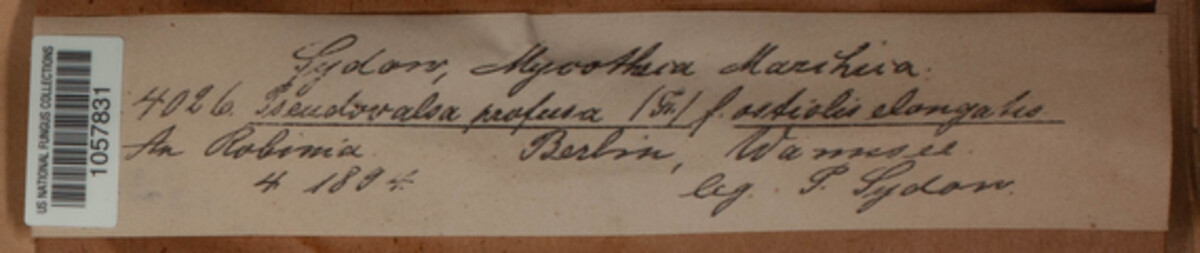 US NATIONAL FUNGUS COLLECTIONS
1057831
Sydow, Mycotheca Marchica.
4026. Pseudovalsa profusa (Fr.) f. ostiolis elongatis
An Robinia. Berlin, Wannsee.
4 1894. leg. P. Sydow.